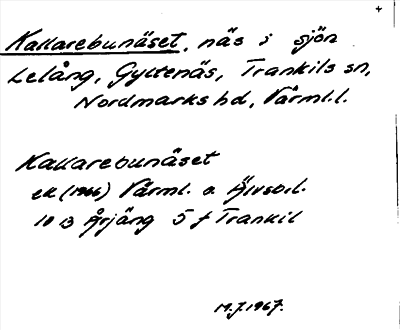 +
Kallarebunäset, näs i sjön
Lelång, Gyltenäs, Trankils sn,
Nordmarks hd, Värml.l.
Kallarebunäset
ek (1966) Värml. o. Älvsb.l.
10 B Årjäng 5 f Trankil
M.J. 1967.